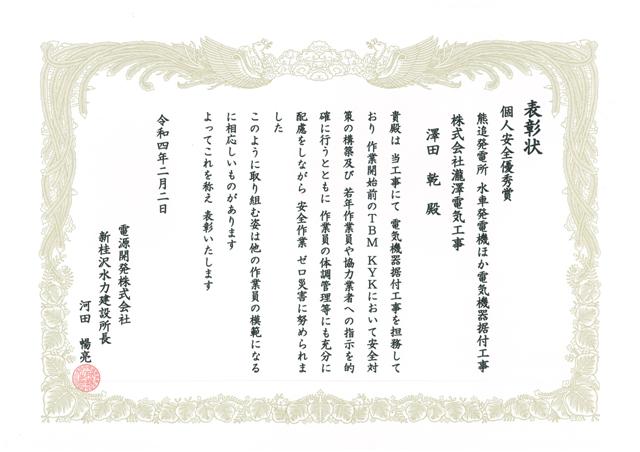 表彰状
個人安全優秀賞
熊追発電所 水車発電機ほか電気機器据付工事
株式会社瀧澤電気工事
澤田 乾 殿
貴殿は 当工事にて 電気機器据付工事を担務して
おり 作業開始前のTBM KYKにおいて安全対
策の構築及び 若年作業員や協力業者への指示を的
確に行うとともに 作業員の体調管理等にも充分に
配慮をしながら 安全作業 ゼロ災害に努められま
した
このように取り組む姿は他の作業員の模範になる
に相応しいものがあります
よってこれを称え 表彰いたします
令和四年二月二日
電源開発株式会社
新桂沢水力建設所長
河田 暢亮